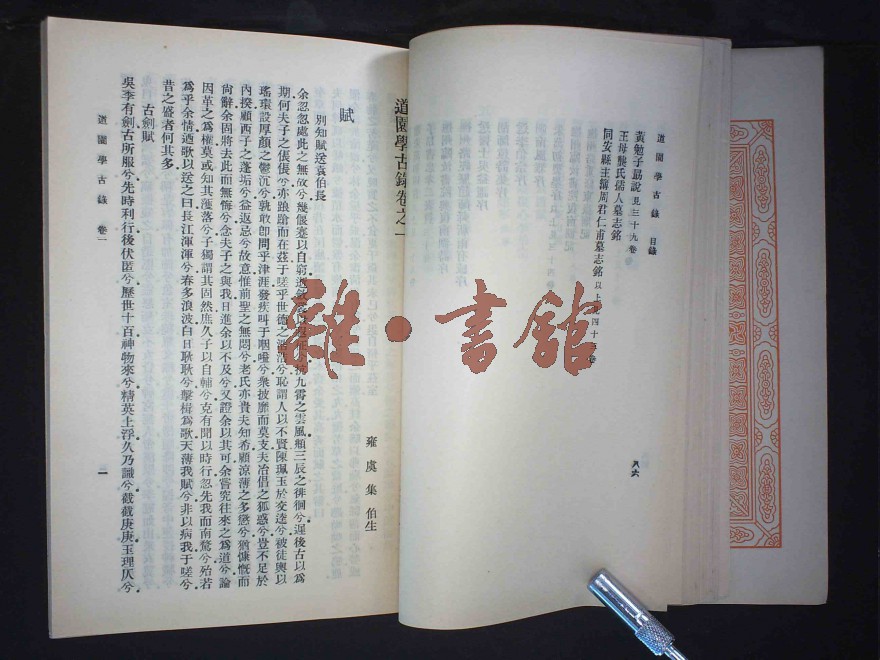 道園學古錄 目錄
黃勉子勗說見三十九卷
王母龔氏孺人墓志銘
同安縣主簿周君仁甫墓志銘以上見四十三卷
八六
雜·書館
道園學古錄卷之一
雍虞集伯生
賦
別知賦送袁伯長
余忽忽處此之無攸兮幾偃蹇以自窮
抗九霄之雲風頫三辰之徘徊兮遲後古以爲
期何夫子之倀倀兮亦踉蹌而在茲于嗟乎世德之
浩兮恥謂人以不賢陳珮玉於交逵兮被徒輿以
瑤環設厚顏之鬱沉兮孰敢卽問乎津涯發疾叫于咽嗌兮衆披靡而莫支夫冶倡之狐惑兮豈不足於
內揆顧西子之蓬垢兮益返忌兮故意惟前聖之無悶兮老氏亦貴夫知希顧涼薄之多愆兮猶慷慨而
尙辭余固將去此而無悔兮念夫子之與我日進余以不及兮又證余以其可余嘗究往來之爲道兮論
因革之爲權莫或知其濩落兮子獨謂其固然庶久子以自輔兮克有聞以時行忽先我而南騖兮殆若
爲乎余情迺歌以送之曰長江渾渾兮春多浪波白日耿耿兮擊楫爲歌天薄我賦兮非以病我于嗟兮
昔之盛者何其多
古劍賦
吳李有劍古所服兮先時利行後伏匿兮歷世十百神物來兮精英上浮久乃識兮截截庚庚玉理仄兮
道園學古錄 卷一
一